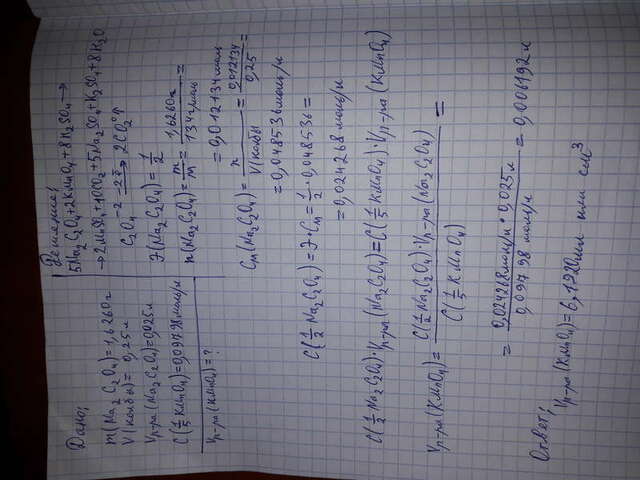 Дано:
m(Na₂C₂O₄)=1,6260г
V(колбы)=0,25л
Vр-ра(Na₂C₂O₄)=0,025л
C(1/5 KMnO₄)=0,09798моль/л
Vр-ра(KMnO₄)=?
Решение:
5Na₂C₂O₄+2KMnO₄+8H₂SO₄→
→2MnSO₄+10CO₂+5Na₂SO₄+K₂SO₄+8H₂O
C₂O₄⁻² —⁻²ē→ 2CO₂⁰↑
Э(Na₂C₂O₄)=1/2
n(Na₂C₂O₄)=m/M=1,6260г/134г/моль=
=0,012134моль
Cм(Na₂C₂O₄)=n/V(колбы=0,012134/0,25=
=0,048536моль/л
C(1/2 Na₂C₂O₄)=Э·Cм=1/2·0,048536=
=0,024268 моль/л
C(1/2 Na₂C₂O₄)·Vр-ра(Na₂C₂O₄)=C(1/5 KMnO₄)·Vр-ра(KMnO₄)
Vр-ра(KMnO₄)=C(1/2 Na₂C₂O₄)·Vр-ра(Na₂C₂O₄)/C(1/5 KMnO₄)=
=0,024268моль/л·0,025л/0,09798 моль/л=0,006192л
Ответ:
Vр-ра(KMnO₄)=6,1920мл или см³